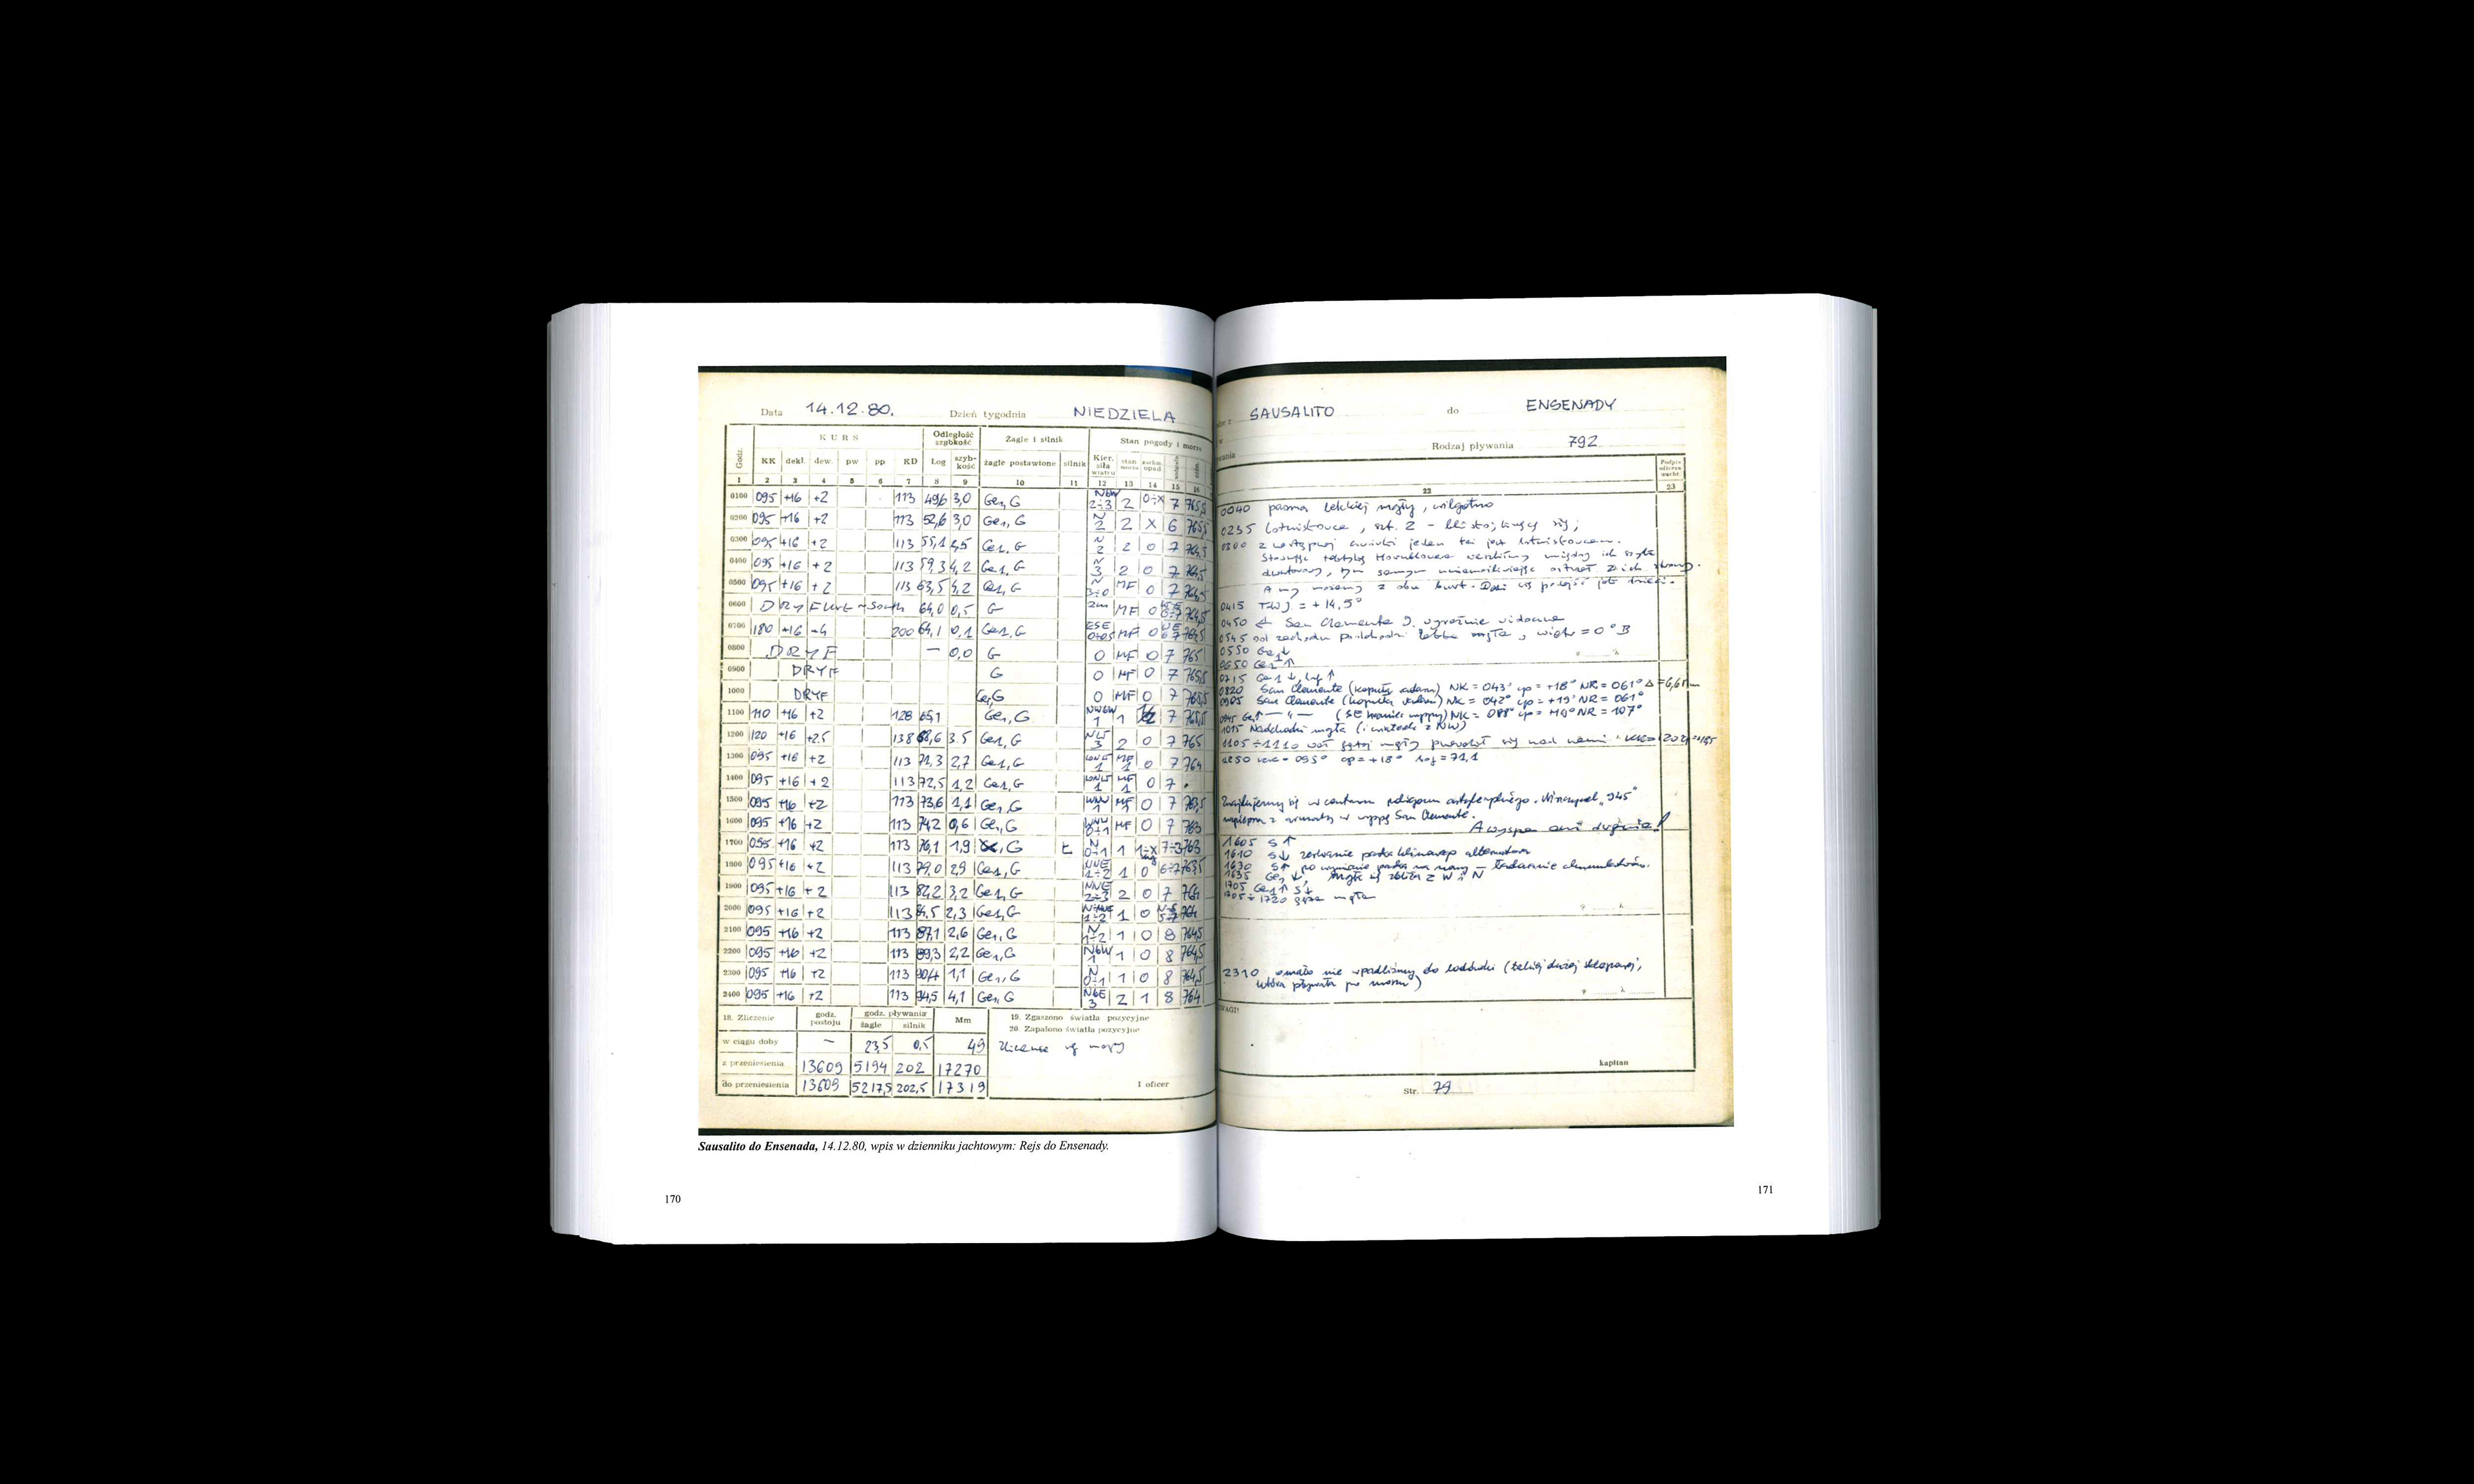 Data 14.12.80. Dzień tygodnia NIEDZIELA
KURS Odległość szybkość Żagle i silnik Stan pogody i morza
Godz. KK dekl. dew. pw pp KD Log szybkość żagle postawione silnik Kier. siła wiatru stan morza opad
1 2 3 4 5 6 7 8 9 10 11 12 13 14 15 16
0100 095 +16 +2 113 49,6 3,0 Ge1, G NbW 2÷3 2 0÷X 7 765,5
0200 095 +16 +2 113 52,6 3,0 Ge1, G N 2 2 X 6 765,5
0300 095 +16 +2 113 55,1 2,5 Ge1, G N 2 2 0 7 764,5
0400 095 +16 +2 113 59,3 4,2 Ge1, G N 3 2 0 7 764,5
0500 095 +16 +2 113 63,5 4,2 Ge1, G N 3÷0 MF 0 7 764,5
0600 DRYF 64,0 0,5 G MF 0
0700 180 +16 +4 200 64,1 0,1 Ge1, G ESE MF 0
0800 DRYF — 0,0 G 0 MF 0 7 765
0900 DRYF G 0 MF 0 7 765,5
1000 DRYF Ge1G 0 MF 0 7 765,5
1100 110 +16 +2 128 65,1 Ge1, G NWbW 1 1 7 765,5
1200 120 +16 +2,5 138 68,6 3.5 Ge1, G 3 2 0 7 765
1300 095 +16 +2 113 71,3 2,7 Ge1, G 1 0 7 764
1400 095 +16 +2 113 72,5 1,2 Ge1, G 1 0 7
1500 095 +16 +2 113 73,6 1,1 Ge1, G WNW 1 0 7 763,5
1600 095 +16 +2 113 74,2 0,6 Ge1, G WNW 0÷1 MF 0 7 763
1700 095 +16 +2 113 76,1 1,9 G N 0÷1 1 7÷3 763
1800 095 +16 +2 113 79,0 2,9 Ge1, G NNE 1÷2 1 0 6÷7 763,5
1900 095 +16 +2 113 82,2 3,2 Ge1, G NNE 2÷3 2 0 7 764
2000 095 +16 +2 113 84,5 2,3 Ge1, G N÷NNE 1÷2 1 0 764
2100 095 +16 +2 113 87,1 2,6 Ge1, G N 1÷2 1 0 8 764,5
2200 095 +16 +2 113 89,3 2,2 Ge1, G NbW 1 1 0 8 764,5
2300 095 +16 +2 113 90,4 1,1 Ge1, G N 0÷1 1 0 8 764,5
2400 095 +16 +2 113 94,5 4,1 Ge1, G NbE 3 2 1 8 764
18. Zliczenie godz. postoju godz. pływania żagle silnik Mm
19. Zgaszono światła pozycyjne
20. Zapalono światła pozycyjne
w ciągu doby — 23,5 0,5 49 zliczenie wg mapy
z przeniesienia 13609 5194 202 17270
do przeniesienia 13609 5217,5 202,5 17319
I oficer
Sausalito do Ensenada, 14.12.80, wpis w dzienniku jachtowym: Rejs do Ensenady.
170
SAUSALITO do ENSENADY
Rodzaj pływania 792
Podpis oficera wacht.
22 23
0040 pasma lekkiej mgły, wilgotno
0235 Lotniskowce, szt. 2 – bliżej;
0300 z jeden też jest lotniskowcem.
Stosując taktykę Hornblowera weszliśmy między ich szyk
, tym samym uniemożliwiając ostrzał z ich strony.
A my możemy z obu burt.
0415 = +14,5°
0450 ← San Clemente I. wyraźnie widoczna
0545 od zachodu podchodzi mgła, wiatr = 0°B
0550 Ge1↓
0650 Ge1↑
0715 Ge1↓, log↑
0820 San Clemente (kopuła radaru) NK = 043° cp = +18° NR = 061° Δ=6,6
0905 San Clemente (kopuła radaru) NK = 042° cp = +19° NR = 061°
0945 Ge1↑ — " — (SE kraniec wyspy) NK = 088° cp = +19° NR = 107°
1015 Nadchodzi mgła (i wiaterek z NW)
1105÷1110 wał gęstej mgły przewalił się nad nami
1250 KK = 095° cp = +18° log = 71,1
Znajdujemy się w centrum poligonu artyleryjskiego. Niszczyciel „945"
napieprza z armaty w wyspę San Clemente.
A wyspa ani drgnie!
1605 S↑
1610 S↓ zerwanie paska klinowego alternatora
1630 S↑ po wymianie paska na nowy – ładowanie akumulatorów.
1635 Ge1↓, mgła się zbliża z W i N
1705 Ge1↑ S↓
1705÷1720 gęsta mgła
2310 omalże nie wpadliśmy do lodówki (takiej dużej sklepowej,
która pływała po morzu)
UWAGI!
kapitan
Str. 79
171